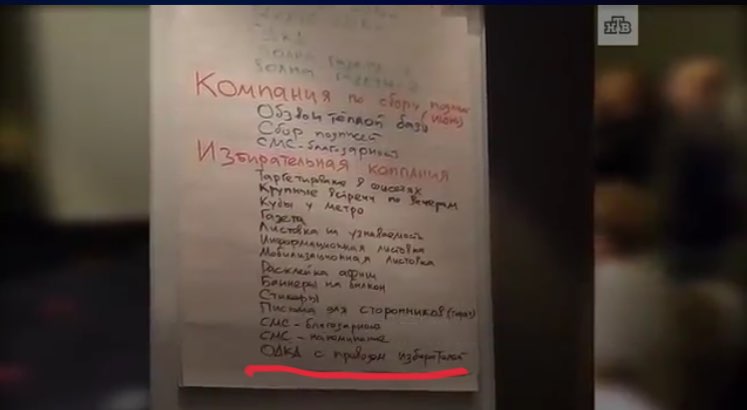 НТВ
ОДКД
волна газеты 1
волна газеты 2
Компания по сбору подписей (июнь)
Обзвон тёплой базы
Сбор подписей
СМС-благодарность
Избирательная компания
Таргетирование в соцсетях
Крупные встречи по вечерам
Кубы у метро
Газета
Листовка на узнаваемость
Информационная листовка
Мобилизационная листовка
Расклейка афиш
Баннеры на балкон
Стикеры
Письма для сторонников
СМС-благодарность
СМС-напоминание
ОДКД с приводом избирателей